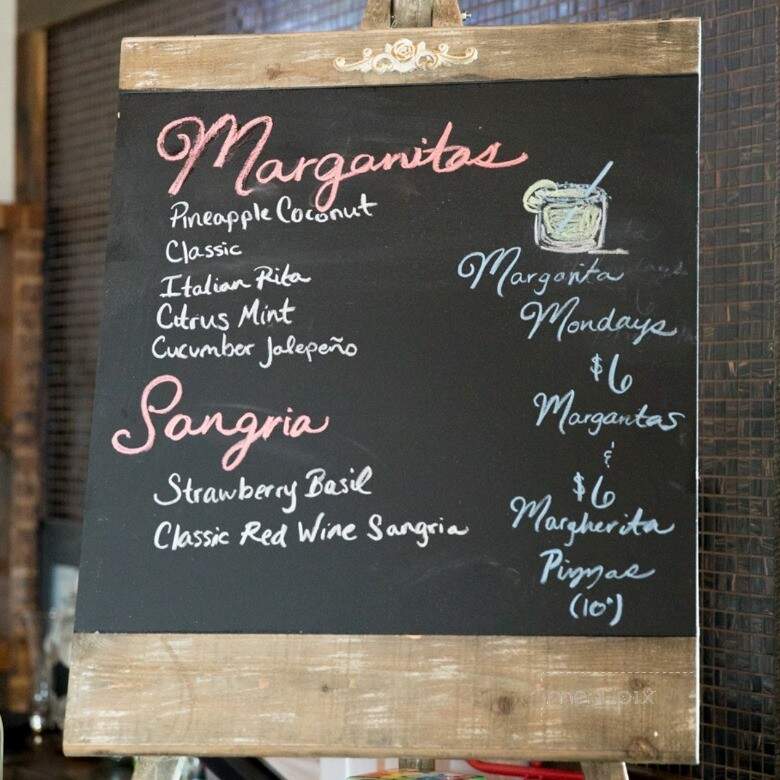 Margaritas
Pineapple Coconut
Classic
Italian Rita
Citrus Mint
Cucumber Jalepeño
Sangria
Strawberry Basil
Classic Red Wine Sangria
Margarita
Mondays
$6
Margaritas
&
$6
Margherita
Pizzas
(10")